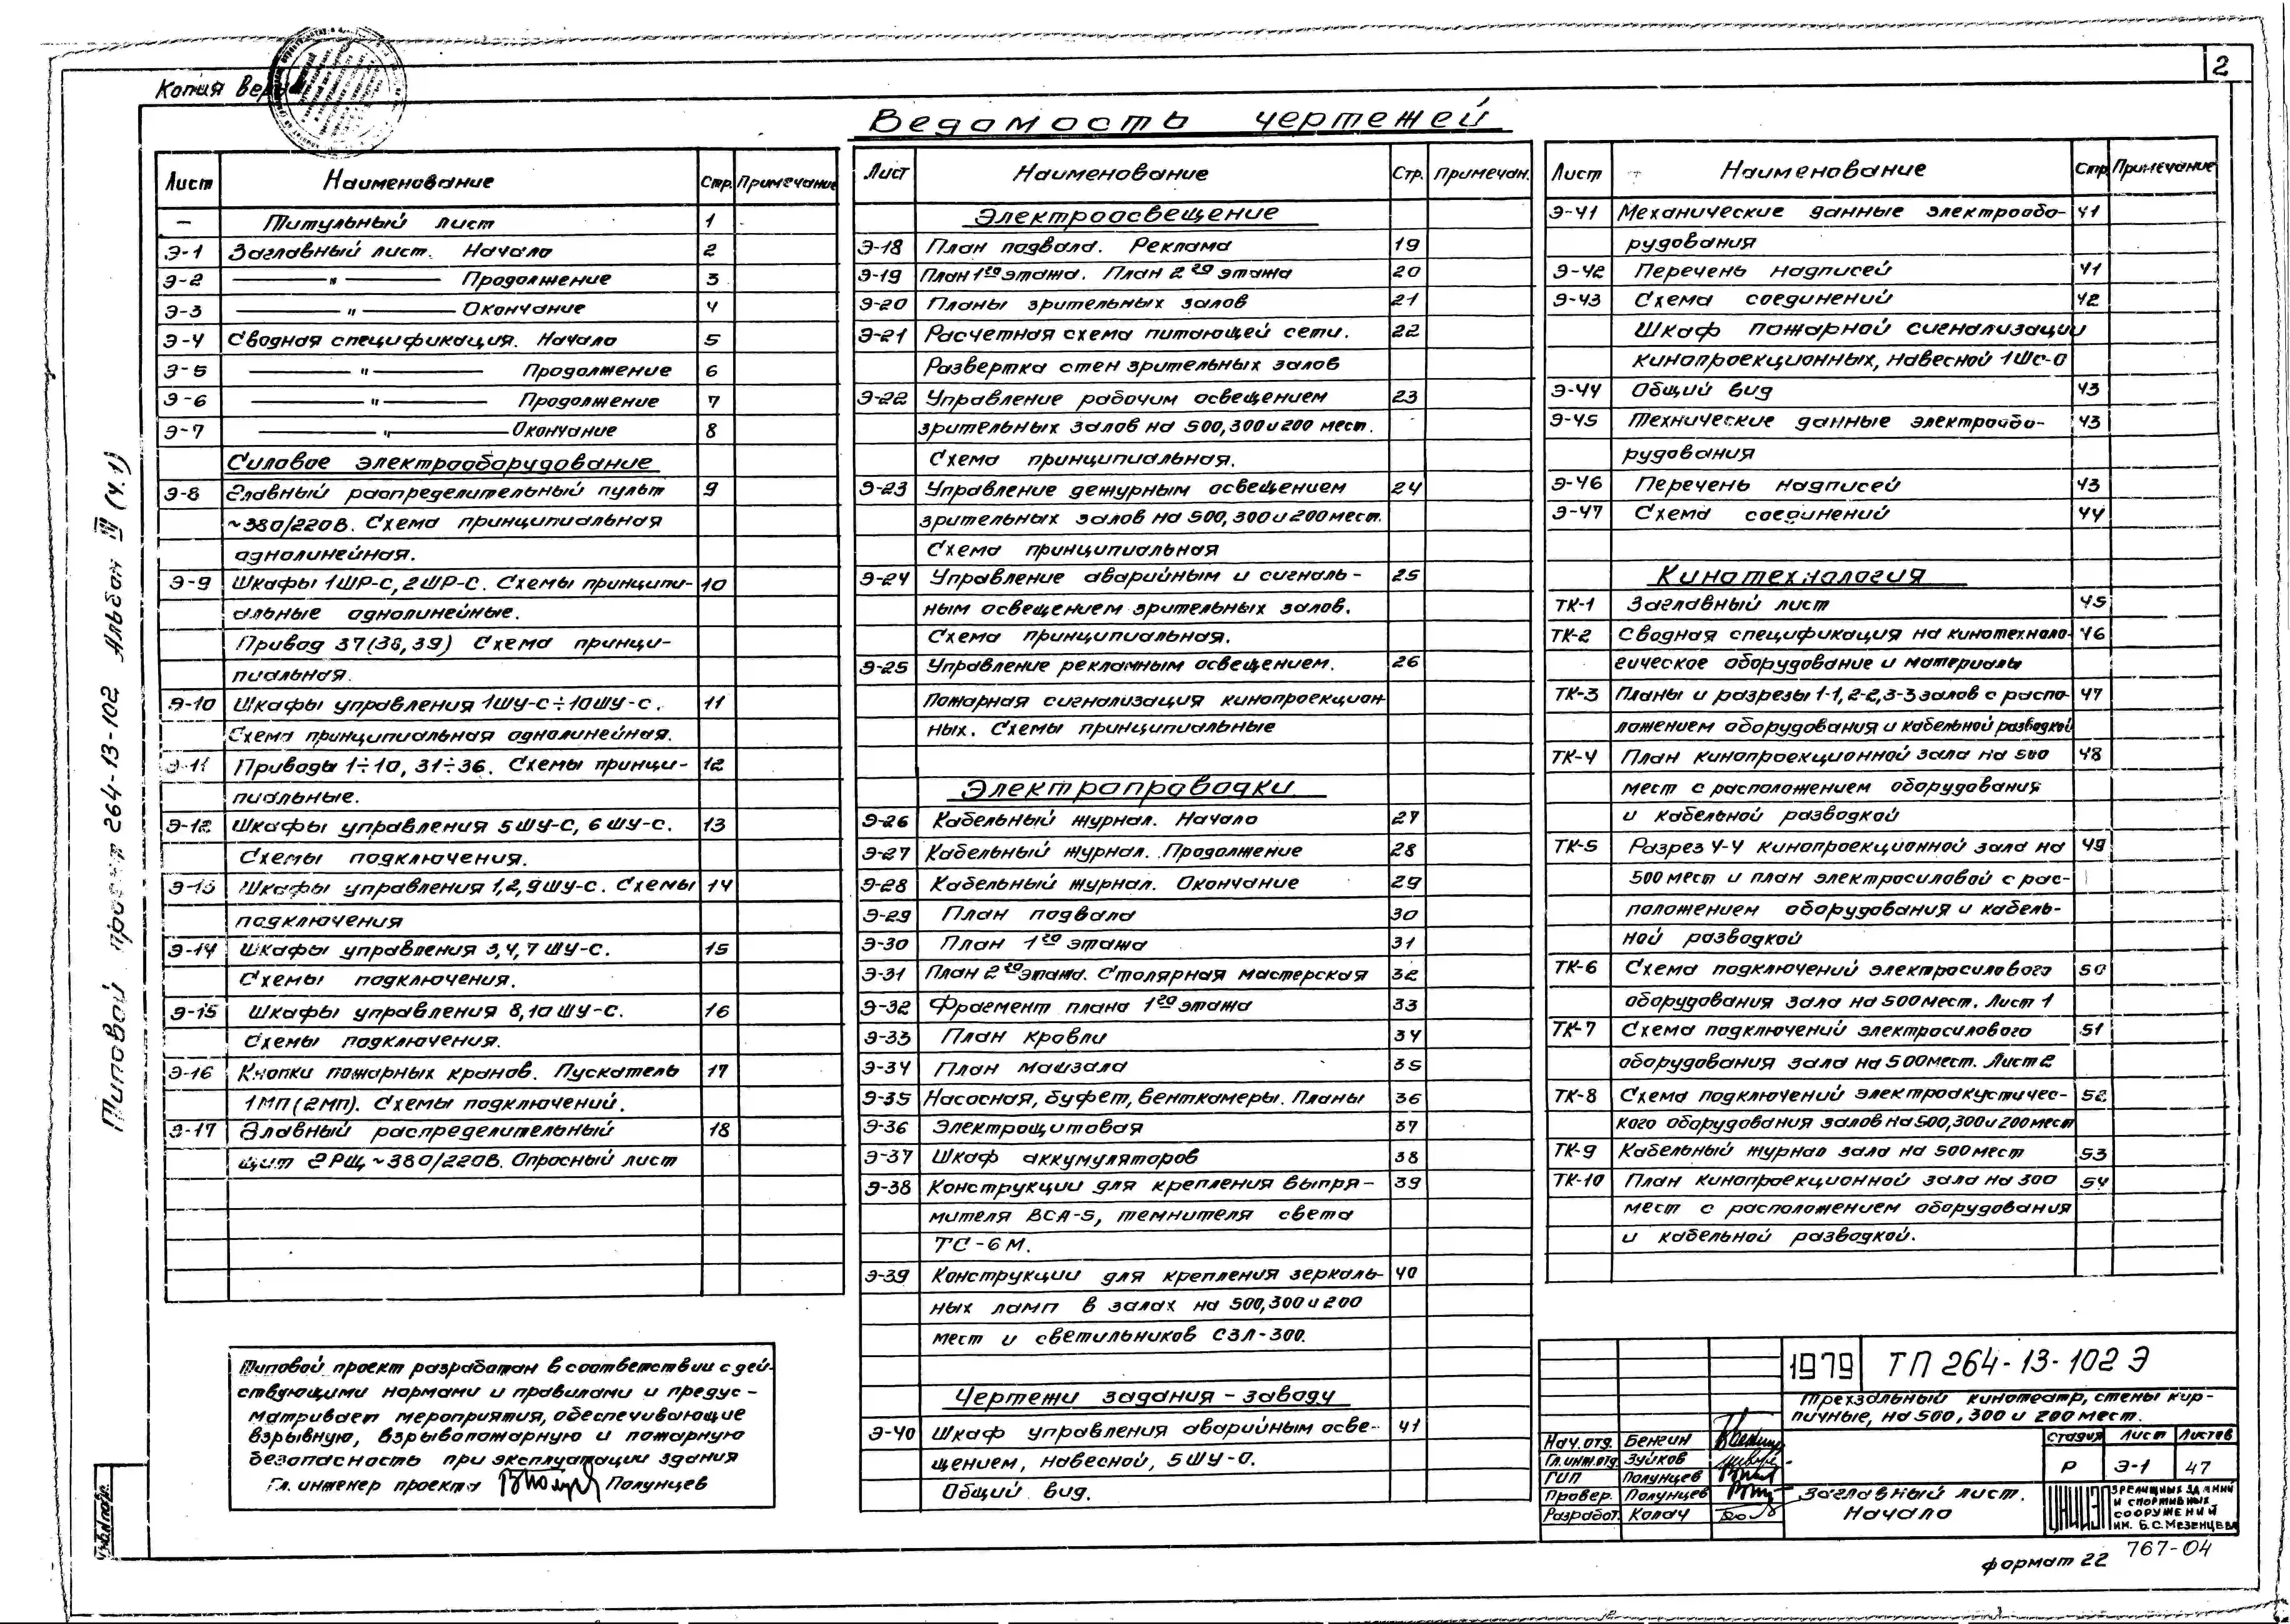 2
Копия верн
Ведомость чертежей
Лист Наименование Стр. Примечание
— Титульный лист 1
Э-1 Заглавный лист. Начало 2
Э-2 —"— Продолжение 3
Э-3 —"— Окончание 4
Э-4 Сводная спецификация. Начало 5
Э-5 —"— Продолжение 6
Э-6 —"— Продолжение 7
Э-7 —"— Окончание 8
Силовое электрооборудование
Э-8 Главный распределительный пульт 9
~380/220В. Схема принципиальная
однолинейная.
Э-9 Шкафы 1ШР-С, 2ШР-С. Схемы принципи- 10
альные однолинейные.
Привод 37(38,39) Схема принци-
пиальная.
Э-10 Шкафы управления 1ШУ-С÷10ШУ-С. 11
Схема принципиальная однолинейная.
Э-11 Приводы 1÷10, 31÷36. Схемы принци- 12
пиальные.
Э-12 Шкафы управления 5ШУ-С, 6ШУ-С. 13
Схемы подключения.
Э-13 Шкафы управления 1,2,9ШУ-С. Схемы 14
подключения
Э-14 Шкафы управления 3,4,7 ШУ-С. 15
Схемы подключения.
Э-15 Шкафы управления 8,10 ШУ-С. 16
Схемы подключения.
Э-16 Кнопки пожарных кранов. Пускатель 17
1МП(2МП). Схемы подключений.
Э-17 Главный распределительный 18
щит ГРЩ ~380/220В. Опросный лист
Лист Наименование Стр. Примечан.
Электроосвещение
Э-18 План подвала. Реклама 19
Э-19 План 1го этажа. План 2го этажа 20
Э-20 Планы зрительных залов 21
Э-21 Расчетная схема питающей сети. 22
Развертка стен зрительных залов
Э-22 Управление рабочим освещением 23
зрительных залов на 500,300 и 200 мест.
Схема принципиальная.
Э-23 Управление дежурным освещением 24
зрительных залов на 500, 300 и 200 мест.
Схема принципиальная
Э-24 Управление аварийным и сигналь- 25
ным освещением зрительных залов.
Схема принципиальная.
Э-25 Управление рекламным освещением. 26
Пожарная сигнализация кинопроекцион-
ных. Схемы принципиальные
Электропроводки
Э-26 Кабельный журнал. Начало 27
Э-27 Кабельный журнал. Продолжение 28
Э-28 Кабельный журнал. Окончание 29
Э-29 План подвала 30
Э-30 План 1го этажа 31
Э-31 План 2го этажа. Столярная мастерская 32
Э-32 Фрагмент плана 1го этажа 33
Э-33 План кровли 34
Э-34 План машзала 35
Э-35 Насосная, буфет, венткамеры. Планы 36
Э-36 Электрощитовая 37
Э-37 Шкаф аккумуляторов 38
Э-38 Конструкции для крепления выпря- 39
мителя ВСА-5, темнителя света
ТС-6М.
Э-39 Конструкции для крепления зеркаль- 40
ных ламп в залах на 500,300 и 200
мест и светильников СЗЛ-300.
Чертежи задания - заводу
Э-40 Шкаф управления аварийным осве- 41
щением, навесной, 5ШУ-О.
Общий вид.
Лист Наименование Стр Примечание
Э-41 Механические данные электрообо- 41
рудования
Э-42 Перечень надписей 41
Э-43 Схема соединений 42
Шкаф пожарной сигнализации
кинопроекционных, навесной 1ШС-О
Э-44 Общий вид 43
Э-45 Технические данные электрообо- 43
рудования
Э-46 Перечень надписей 43
Э-47 Схема соединений 44
Кинотехнология
ТК-1 Заглавный лист 45
ТК-2 Сводная спецификация на кинотехноло- 46
гическое оборудование и материалы
ТК-3 Планы и разрезы 1-1, 2-2, 3-3 залов с распо- 47
ложением оборудования и кабельной разводкой
ТК-4 План кинопроекционной зала на 500 48
мест с расположением оборудования
и кабельной разводкой
ТК-5 Разрез 4-4 кинопроекционной зала на 49
500 мест и план электросиловой с рас-
положением оборудования и кабель-
ной разводкой
ТК-6 Схема подключений электросилового 50
оборудования зала на 500 мест. Лист 1
ТК-7 Схема подключений электросилового 51
оборудования зала на 500 мест. Лист 2
ТК-8 Схема подключений электроакустичес- 52
кого оборудования залов на 500,300 и 200 мест
ТК-9 Кабельный журнал зала на 500 мест 53
ТК-10 План кинопроекционной зала на 300 54
мест с расположением оборудования
и кабельной разводкой.
Типовой проект 264-13-102 Альбом III (ч.1)
Типовой проект разработан в соответствии с дей-
ствующими нормами и правилами и предус-
матривает мероприятия, обеспечивающие
взрывную, взрывопожарную и пожарную
безопасность при эксплуатации здания
Гл. инженер проекта Полунцев
1979 ТП 264-13-102 Э
Трехзальный кинотеатр, стены кир-
пичные, на 500, 300 и 200 мест.
Нач. отд. Бенгин
Гл.инж.отд. Зуйков
ГИП Полунцев
Провер. Полунцев
Разработ. Колач
Стадия Лист Листов
Р Э-1 47
Заглавный лист.
Начало
ЦНИИЭП
зрелищных зданий
и спортивных
сооружений
им. Б.С. Мезенцева
формат 22
767-04